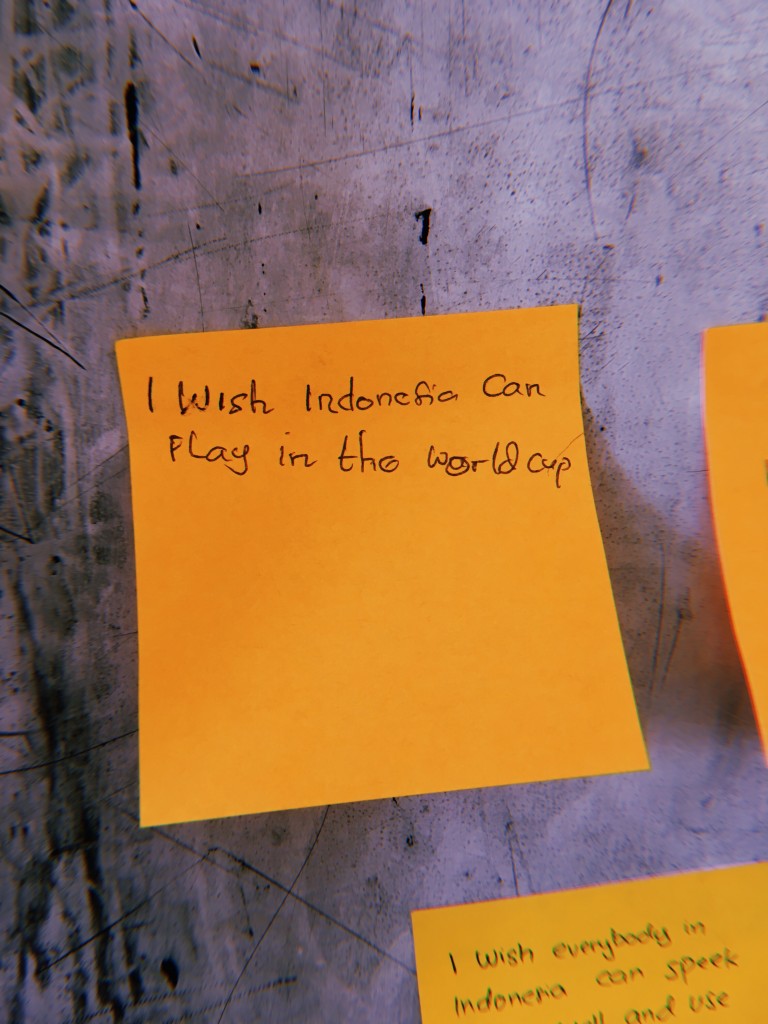 I Wish Indonesia Can
Play in the world cup
I wish everybody in
Indonesia can speek
and use